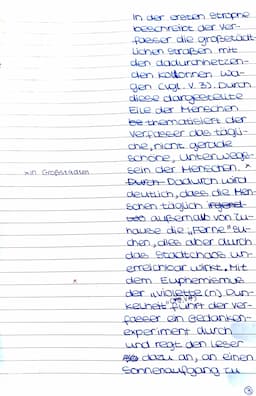 In der ersten Strophe
beschreibt der Ver-
fasser die großstädt-
lichen Straßen mit
den dadurchhetzen-
den Kolonnen Wä-
gen (vgl. V. 3). Durch
diese dargestellte
Eile der Menschen
thematisiert der
Verfasser das tägli-
che, nicht gerade
schöne, Unterwegs-
sein der Menschen. x
x in Großstädten
Durch Dadurch wird
deutlich, dass die Men-
schen täglich irgend-
außerhalb von Zu-
hause die „Ferne" su-
chen, dies aber durch
das Stadtchaos un-
erreichbar wirkt. Mit
x
dem Euphemismus
der „violette(n) Dun-
kelheit" führt der Ver-
fasser ein Gedanken-
experiment durch
und regt den Leser
dazu an, an einen
Sonnenaufgang zu